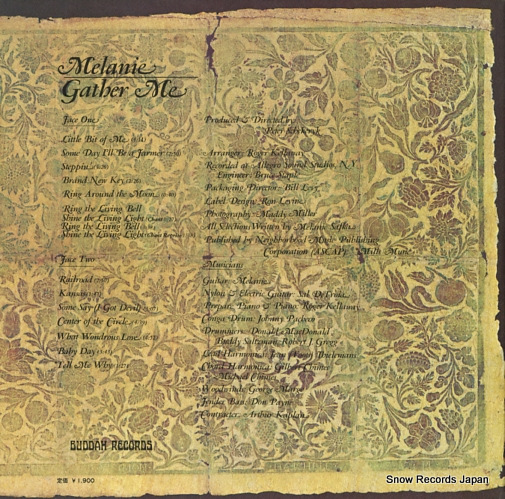 Melanie
Gather Me
Face One
Little Bit of Me
Some Day I'll Be a Farmer
Steppin'
Brand New Key
Ring Around the Moon
Ring the Living Bell
Shine the Living Light
Ring the Living Bell
Shine the Living Light
Face Two
Railroad
Kansas
Some Say (I Got Devil)
Center of the Circle
What Wondrous Love
Baby Day
Tell Me Why
BUDDAH RECORDS
定価 ¥1,900
Produced & Directed by
Peter Schekeryk
Arranger: Roger Kellaway
Recorded at Allegro Sound Studio, N.Y.
Engineer: Bruce Staple
Packaging Director: Bill Levy
Label Design: Ron Levine
Photography: Maddy Miller
All Selections Written by Melanie Safka
Published by Neighborhood Music Publishing
Corporation (ASCAP)
Musicians
Guitar: Melanie
Nylon & Electric Guitar: Sal DeTroia
Piano & Piano: Roger Kellaway
Conga Drum: Johnny Pacheco
Drummers: Donald MacDonald
Buddy Saltzman, Robert J. Gregg
Lead Harmonica: Jean Thielemans
Chord Harmonica:
Michael
Woodwinds: George Marge
Fender Bass: Don Payne
Contractor: Arthur Kaplan
Snow Records Japan